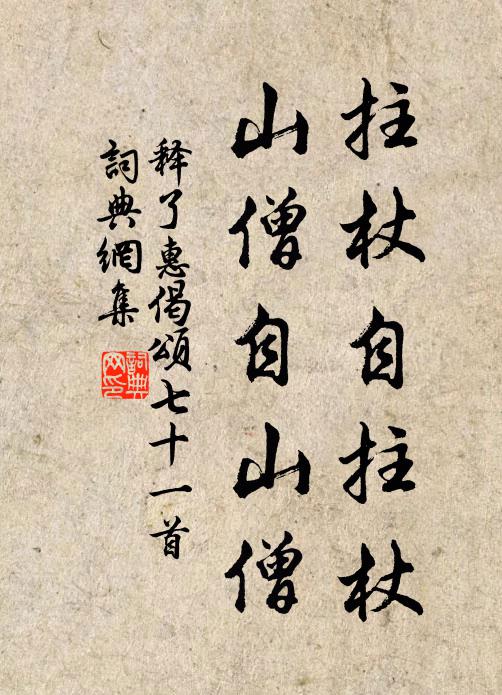 拄杖自拄杖
山僧自山僧
释了惠偈頌七十一首
詞典網集
詞典网印